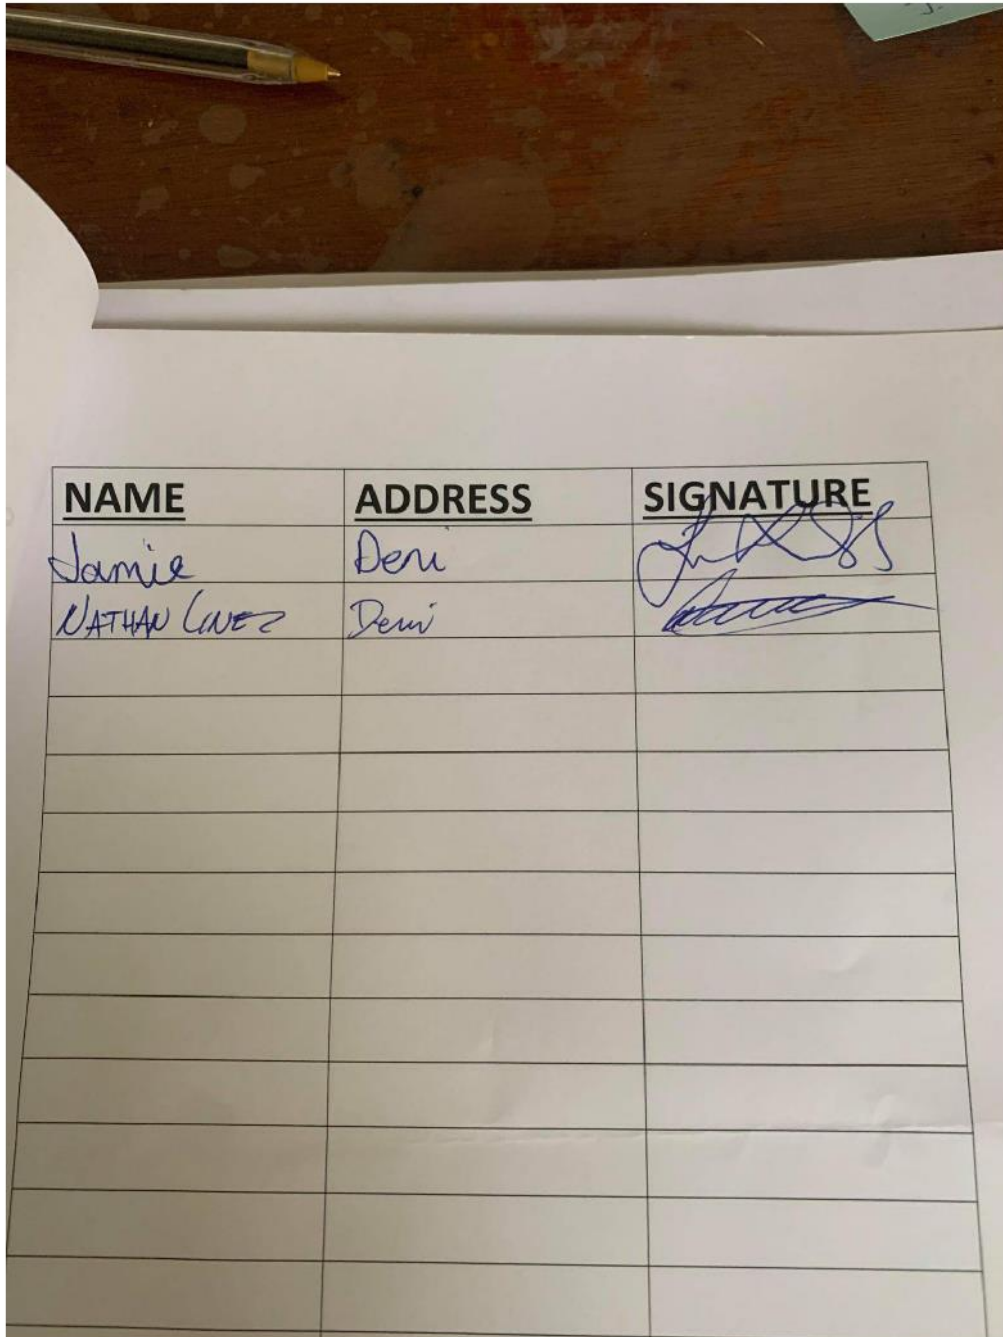 NAME ADDRESS SIGNATURE
Jamie Deni
NATHAN Deni